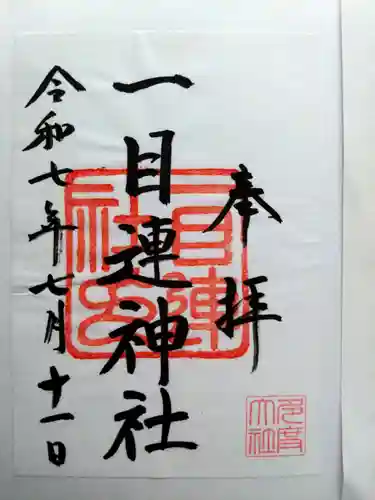 奉拝
一目連神社
令和七年七月十一日
一目連
社印
多度
大社